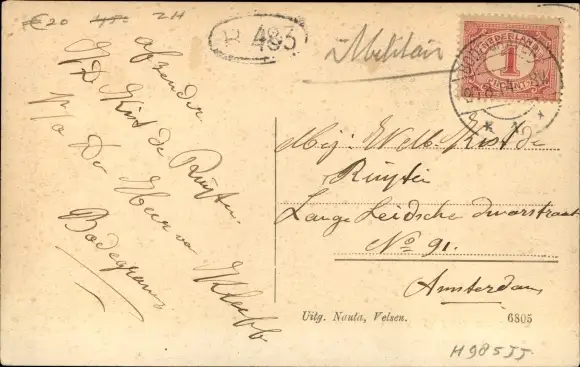 €20 45,- 2H
R 483
Militair
NEDERLAND
1
CENT
afzender
Kist de Ruijter.
p/a De Heer van Kleeff
Bodegraven
Mej. Kist de
Ruijter
Lange Leidsche dwarsstraat
No 91.
Amsterdam
Uitg. Nauta, Velsen.
6805
H985JJ